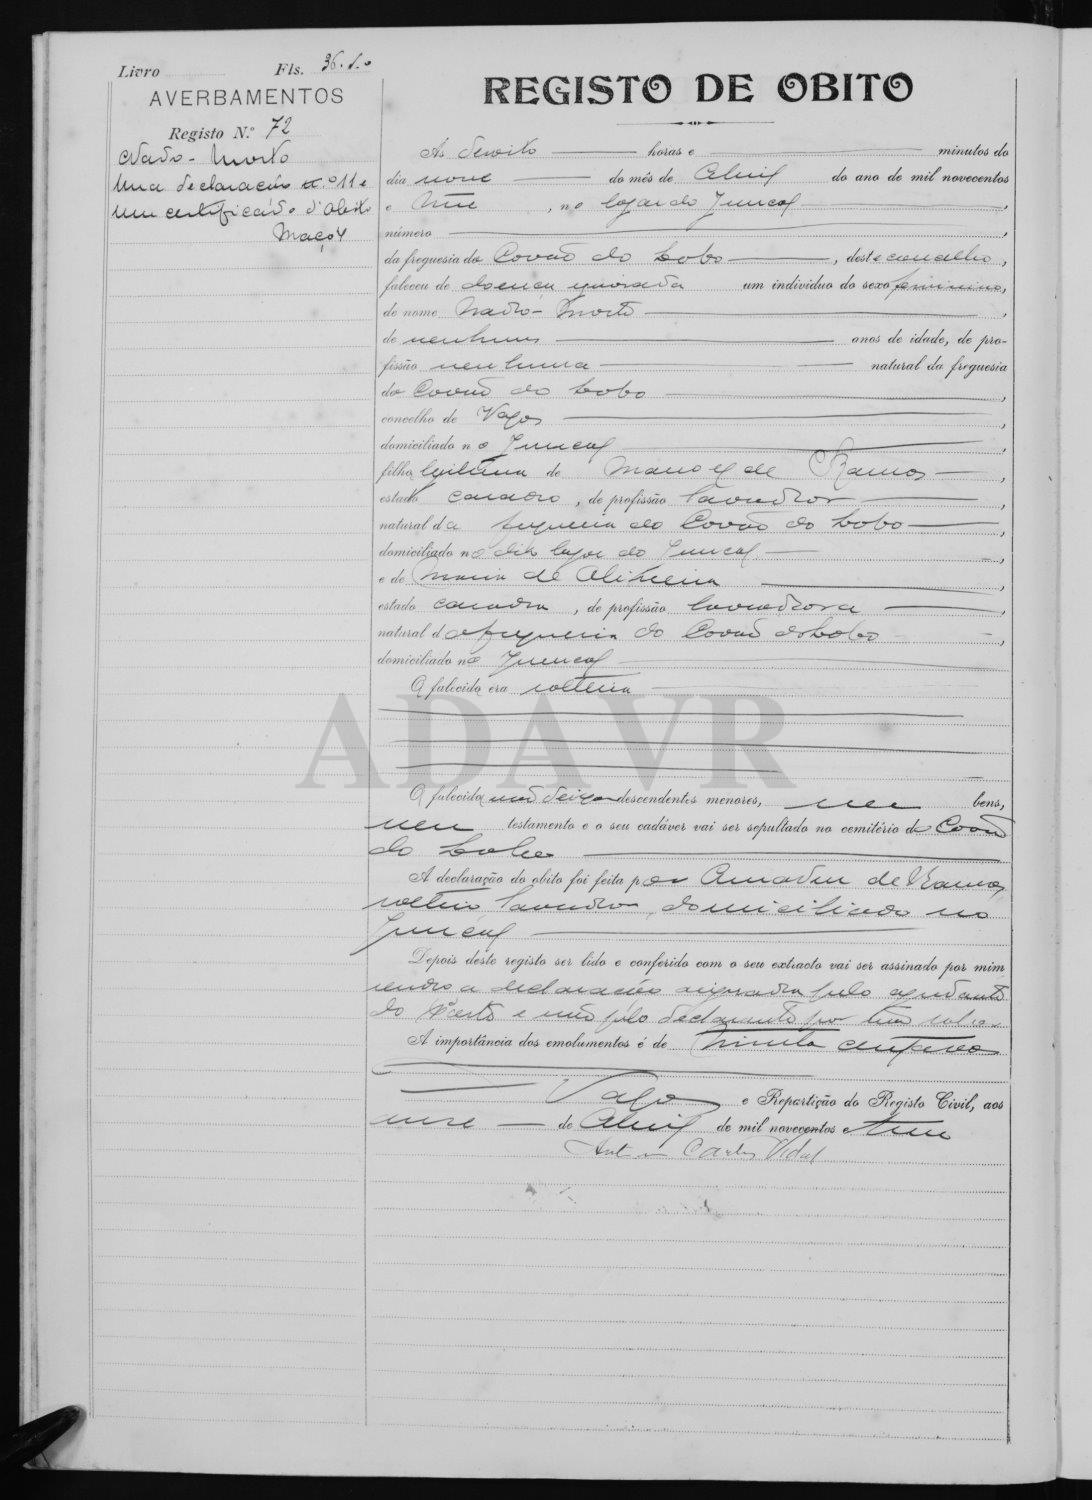 Livro Fls. 36.
AVERBAMENTOS
Registo N.º 72
Nado-Morto
Uma declaração n.º 11 e
um certificado d'obito
Maço 4
REGISTO DE OBITO
Às dezoito horas e minutos do
dia nove do mês de Abril do ano de mil novecentos
e , no logar do Juncal ,
número ,
da freguesia do Covão do Lobo , deste concelho,
faleceu de doença ignorada um individuo do sexo feminino,
de nome Nado-Morto ,
de nenhuns anos de idade, de pro-
fissão nenhuma natural da freguesia
do Covão do Lobo ,
concelho de Vagos ,
domiciliado no Juncal ,
filha legitima de Manoel de Ramos ,
estado casado, de profissão lavrador ,
natural da freguesia do Covão do Lobo ,
domiciliado no dito logar do Juncal ,
e de Maria de Oliveira ,
estado casada, de profissão lavradora ,
natural da freguesia do Covão do Lobo ,
domiciliado no Juncal
A falecida era solteira
ADAVR
A falecida não deixou descendentes menores, nem bens,
nem testamento e o seu cadáver vai ser sepultado no cemitério do Covão
do Lobo
A declaração do obito foi feita por Amadeu de Ramos,
solteiro, lavrador, domiciliado no
Juncal
Depois deste registo ser lido e conferido com o seu extracto vai ser assinado por mim
sendo a declaração assinada pelo ajudante
do Posto e não pelo declarante por não saber.
A importância dos emolumentos é de trinta centavos
Vagos e Repartição do Registo Civil, aos
onze de Abril de mil novecentos e
Antonio Carlos Vidal